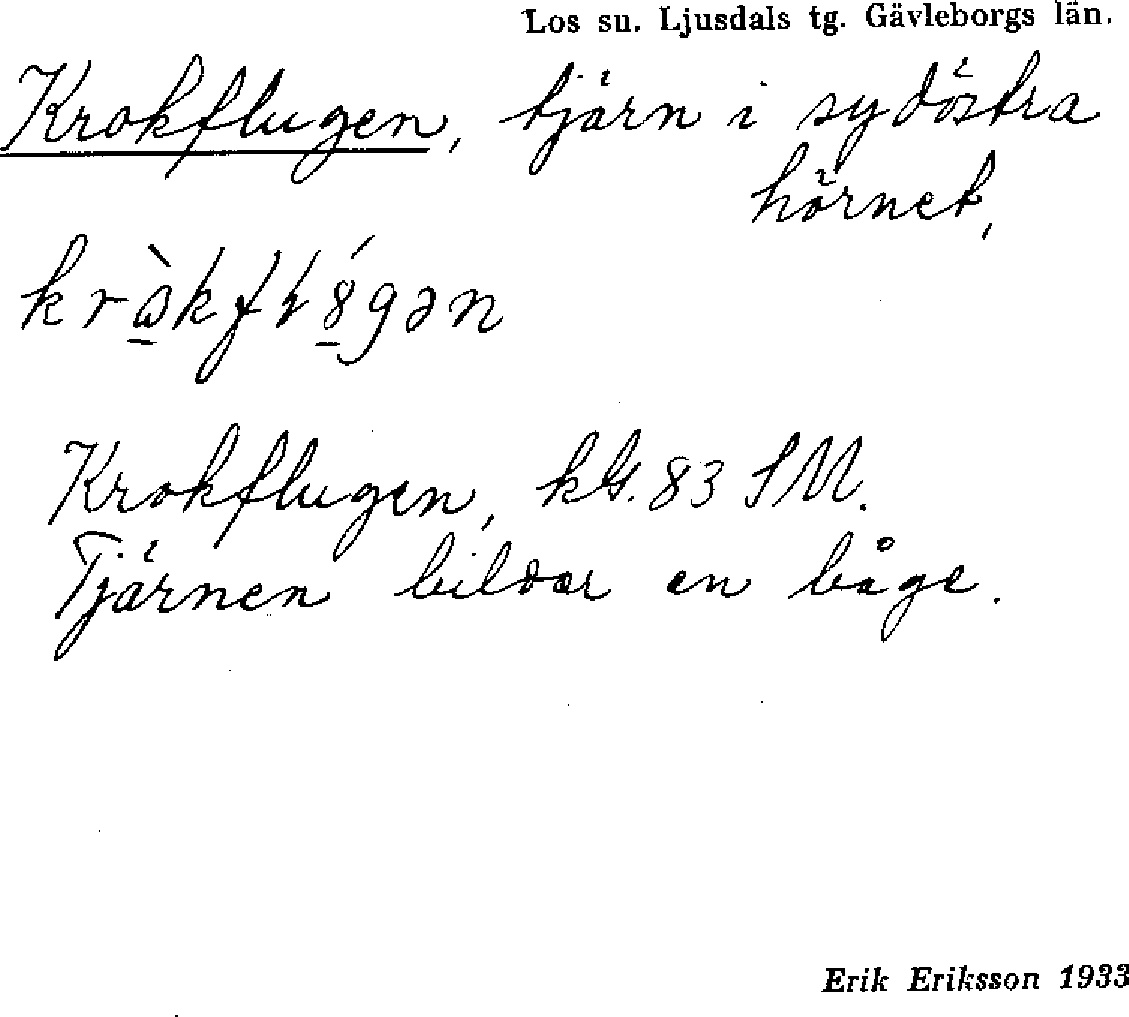 Los su. Ljusdals tg. Gävleborgs län.
Krokflugen, tjärn i sydöstra
hörnet,
Krokflugen, kG. 83 SM.
Tjärnen bildar en båge.
Erik Eriksson 1933